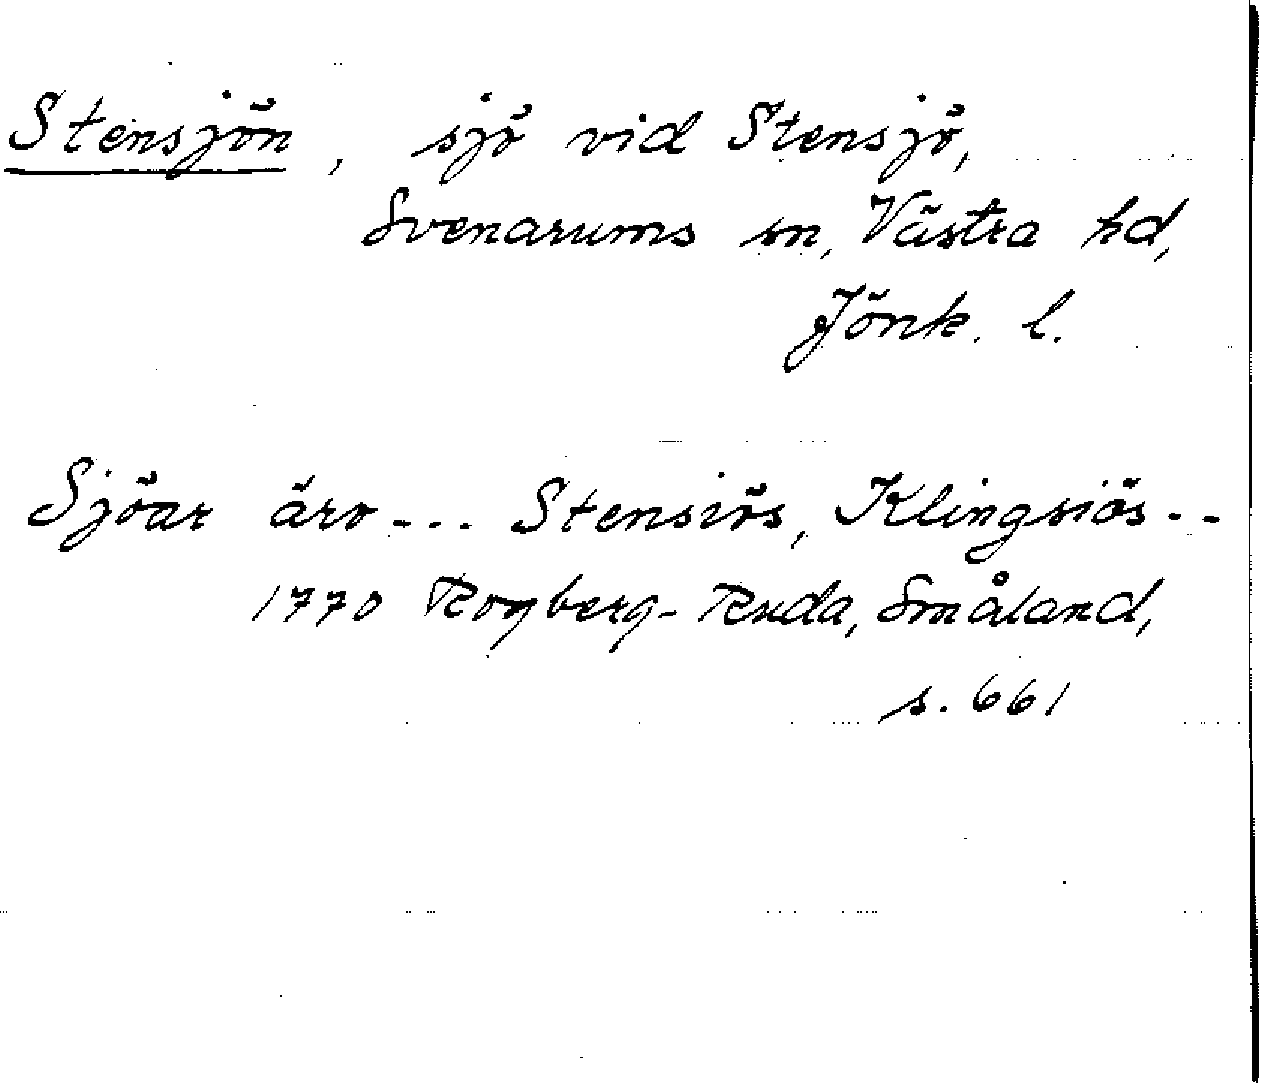 Stensjön, sjö vid Stensjö,
Svenarums sn, Västra hd,
Jönk. l.
Sjöar äro --- Stensiös, Klingsiös --
1770 Rogberg-Ruda, Småland,
s. 661